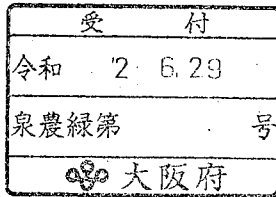 受付
令和 '2 6.29
泉農緑第 号
大阪府